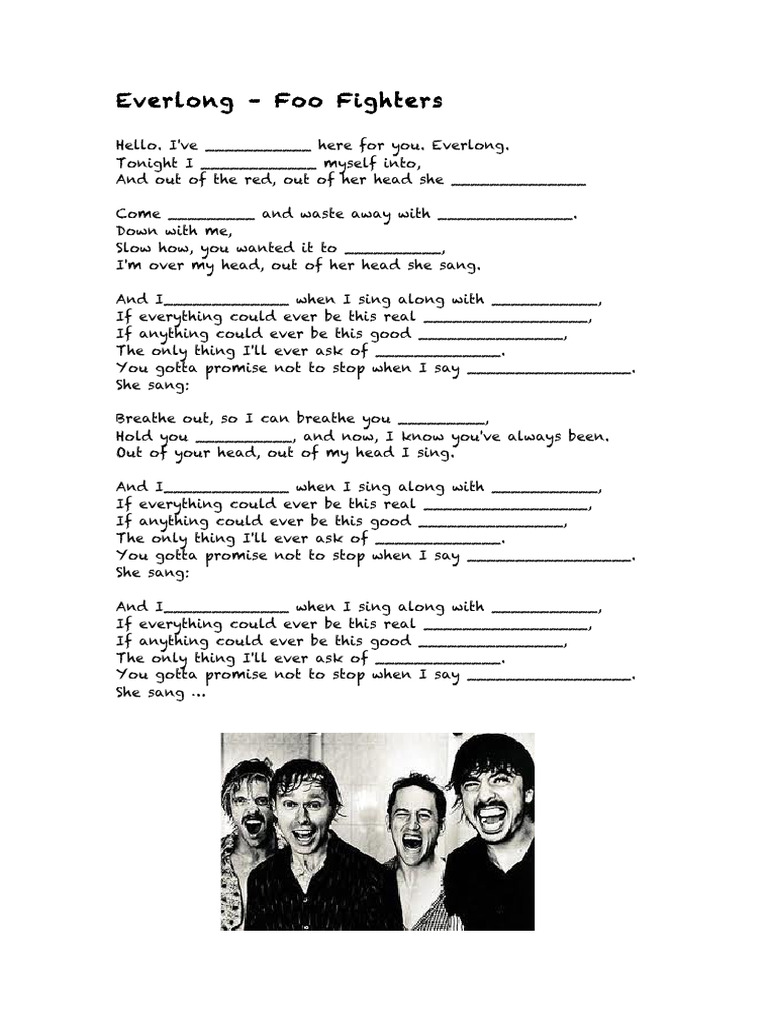 Everlong – Foo Fighters
Hello. I've ___________ here for you. Everlong.
Tonight I ____________ myself into,
And out of the red, out of her head she ______________
Come _________ and waste away with ______________.
Down with me,
Slow how, you wanted it to __________,
I'm over my head, out of her head she sang.
And I_____________ when I sing along with ___________,
If everything could ever be this real _________________,
If anything could ever be this good _______________,
The only thing I'll ever ask of _____________.
You gotta promise not to stop when I say _________________.
She sang:
Breathe out, so I can breathe you _________,
Hold you __________, and now, I know you've always been.
Out of your head, out of my head I sing.
And I_____________ when I sing along with ___________,
If everything could ever be this real _________________,
If anything could ever be this good _______________,
The only thing I'll ever ask of _____________.
You gotta promise not to stop when I say _________________.
She sang:
And I_____________ when I sing along with ___________,
If everything could ever be this real _________________,
If anything could ever be this good _______________,
The only thing I'll ever ask of _____________.
You gotta promise not to stop when I say _________________.
She sang ...